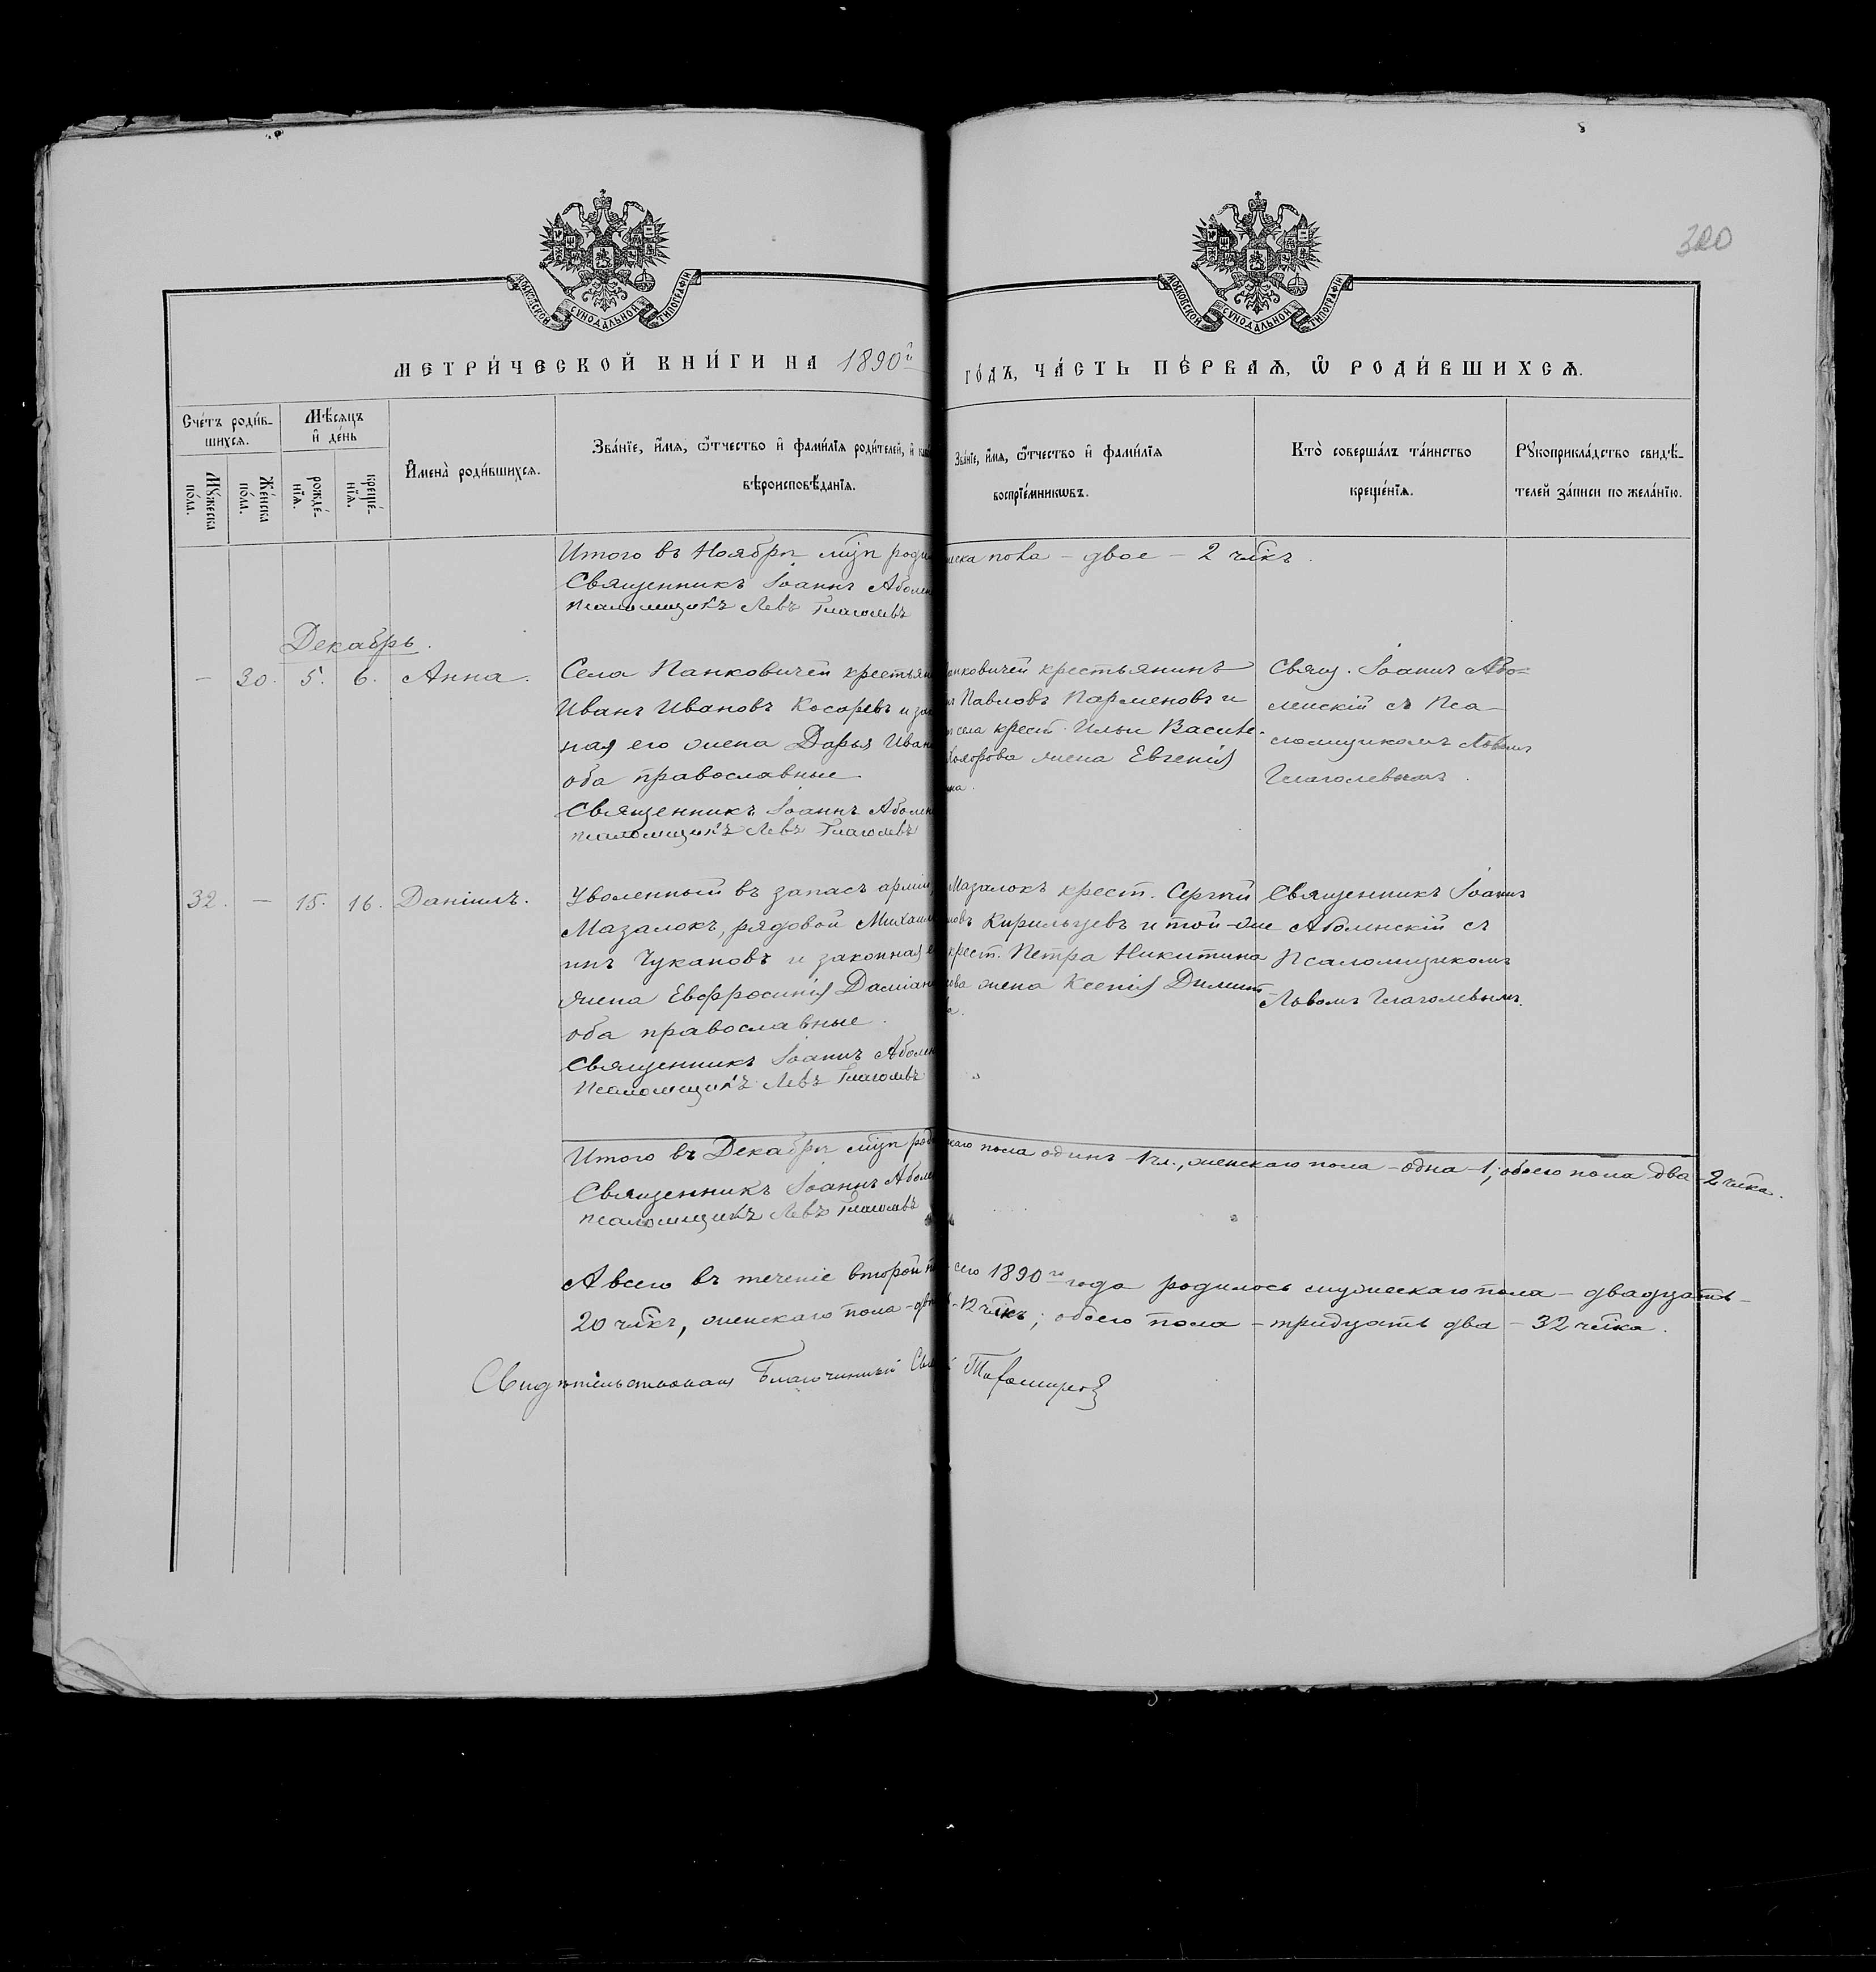 320
МОСКОВСКОЙ СѴНОДАЛЬНОЙ ТИПОГРАФІИ
МОСКОВСКОЙ СѴНОДАЛЬНОЙ ТИПОГРАФІИ
МЕТРИ́ЧЕСКОЙ КНИ́ГИ НА 1890й
ГО́ДЪ, ЧА́СТЬ ПЕ́РВАѦ, Ѡ҆ РОДИ́ВШИХСѦ.
Сче́тъ роди́в-
шихсѧ.
Мꙋ́жеска по́ла.
Же́нска по́ла.
Мѣ́сѧцъ
и҆ де́нь
рожде́-
нїѧ.
креще́-
нїѧ.
И҆мена̀ роди́вшихсѧ.
Зва́нїе, и҆́мѧ, ѻ҆́тчество и҆ фамѝлїѧ роди́телей, и҆
вѣроисповѣ́данїѧ.
Зва́нїе, и҆́мѧ, ѻ҆́тчество и҆ фамѝлїѧ
воспрїе́мникѡвъ.
Кто̀ соверша́лъ та́инство
креще́нїѧ.
Рꙋкоприкла́дство свидѣ́-
телей за́писи по жела́нїю.
Итого въ Ноябрѣ мцѣ
пола – двое – 2 члкъ.
Священникъ Іоаннъ
Псаломщикъ Левъ Глаголевъ
Декабрь.
– 30. 5. 6. Анна.
Села Панковичей
Иванъ Ивановъ Косаревъ и
ная его жена Дарья
оба православные
Священникъ Іоаннъ
Псаломщикъ Левъ Глаголевъ
крестьянинъ
Павловъ Парменовъ и
села крест. Ильи Василь-
жена Евгенія
Свящ. Іоаннъ Або-
ленскій съ Пса-
ломщикомъ Львомъ
Глаголевымъ.
32. – 15. 16. Даніилъ.
Уволенный въ запасъ арміи,
Мазалокъ, рядовой
Чукановъ и законная
жена Евфросинія
оба православные.
Священникъ Іоаннъ
Псаломщикъ Левъ Глаголевъ
Мазалокъ крест. Сергѣй
Кирильцевъ и той-же
крест. Петра Никитина
жена Ксенія Димит-
Священникъ Іоаннъ
Аболенскій съ
Псаломщикомъ
Львомъ Глаголевымъ.
Итого въ Декабрѣ мцѣ
пола одинъ – 1 чл., женскаго пола – одна – 1; обоего пола два – 2 члка.
Священникъ Іоаннъ
Псаломщикъ Левъ Глаголевъ
А всего въ теченіе второй
сего 1890го года родилось мужескаго пола – двадцать –
20 члкъ, женскаго пола –
12 члкъ; обоего пола – тридцать два – 32 члка.
Свидѣтельствовалъ Благочинный